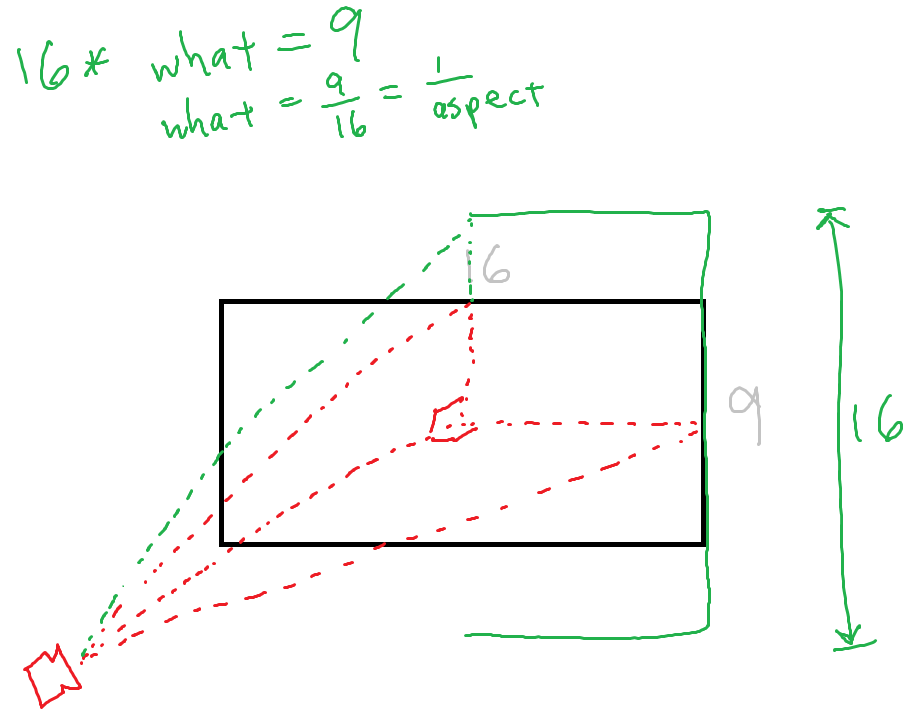 16 * what = 9
what = 9/16 = 1/aspect
16
9
16